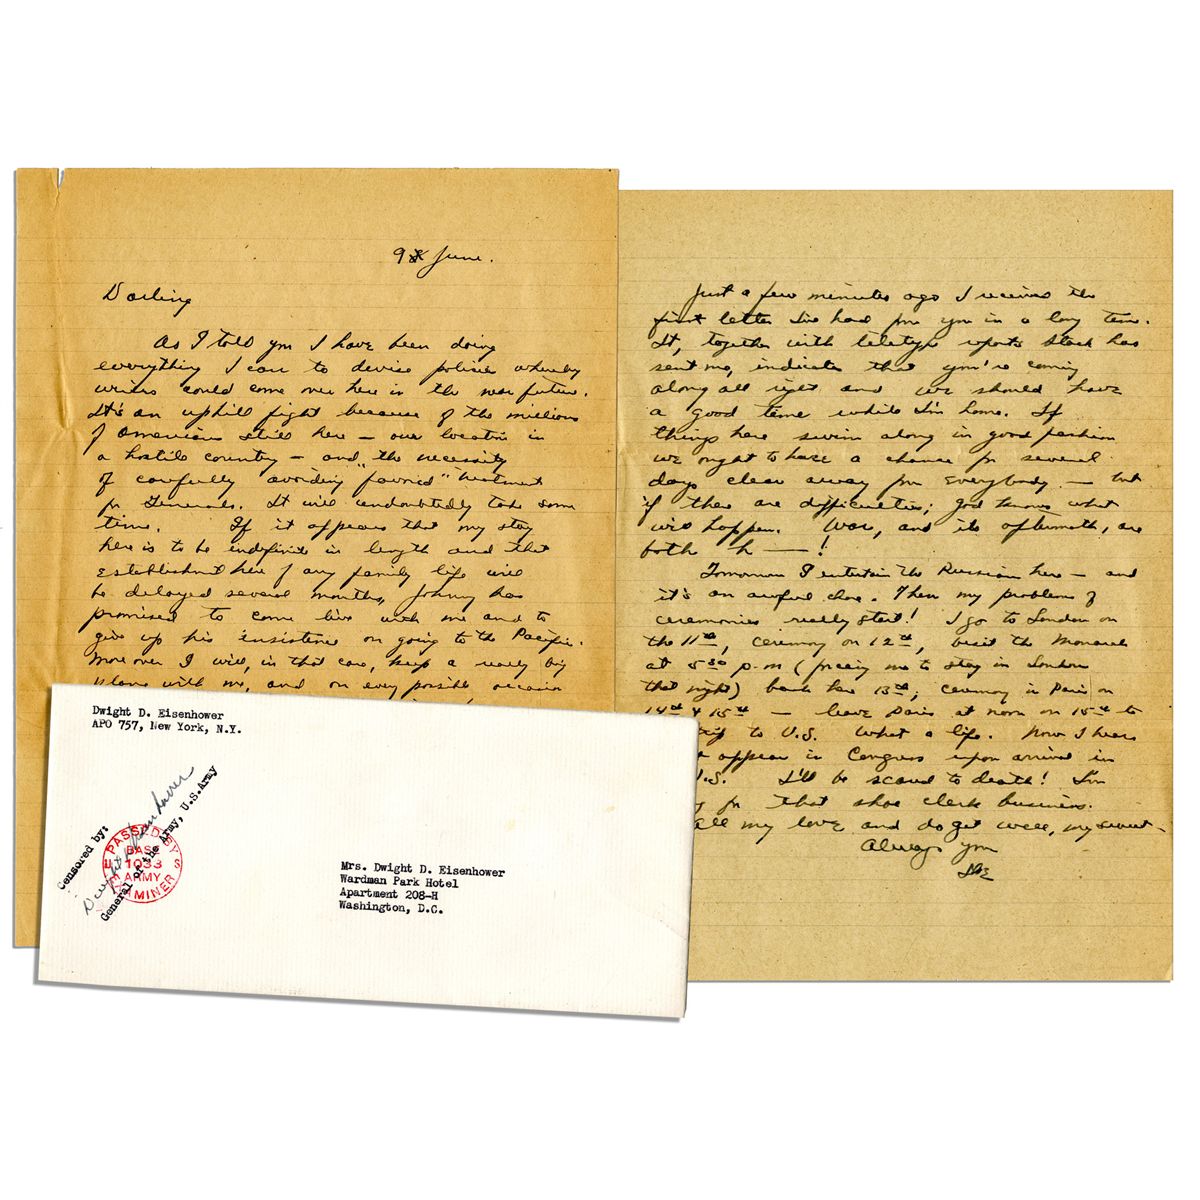 9 June.
Darling
As I told you I have been doing
everything I can to devise policies whereby
wives could come over here in the near future.
It's an uphill fight because of the millions
of Americans still here — our location in
a hostile country — and the necessity
of carefully avoiding "favored" treatment
for Generals. It will undoubtedly take some
time. If it appears that my stay
here is to be indefinite in length and that
establishment here of any family life will
be delayed several months, Johnny has
promised to come live with me and to
give up his insistence on going to the Pacific.
Moreover I will, in that case, keep a really big
plane with me, and on every possible occasion
Just a few minutes ago I received the
first letter I've had from you in a long time.
It, together with teletype reports Stack has
sent me, indicates that you're coming
along all right and we should have
a good time while I'm home. If
things here swim along in good fashion
we ought to have a chance for several
days clear away from everybody — but
if there are difficulties; god knows what
will happen. War, and its aftermath, are
both h——!
Tomorrow I entertain the Russian here — and
it's an awful chore. Then my problems of
ceremonies really start! I go to London on
the 11th, ceremony on 12th, visit the Monarch
at 5:30 p.m (forcing me to stay in London
that night) back here 13th; ceremony in Paris on
14th & 15th — leave Paris at noon on 15th to
trip to U.S. What a life. Now I hear
appear in Congress upon arrival in
U.S. I'll be scared to death! I'm
for that shoe clerk business.
All my love and do get well, my sweet —
Always your
Ike
Dwight D. Eisenhower
APO 757, New York, N.Y.
Censored by:
Dwight D Eisenhower
General of the Army, U.S.Army
PASSED BY
BASE
1033
ARMY
EXAMINER
Mrs. Dwight D. Eisenhower
Wardman Park Hotel
Apartment 208-H
Washington, D.C.